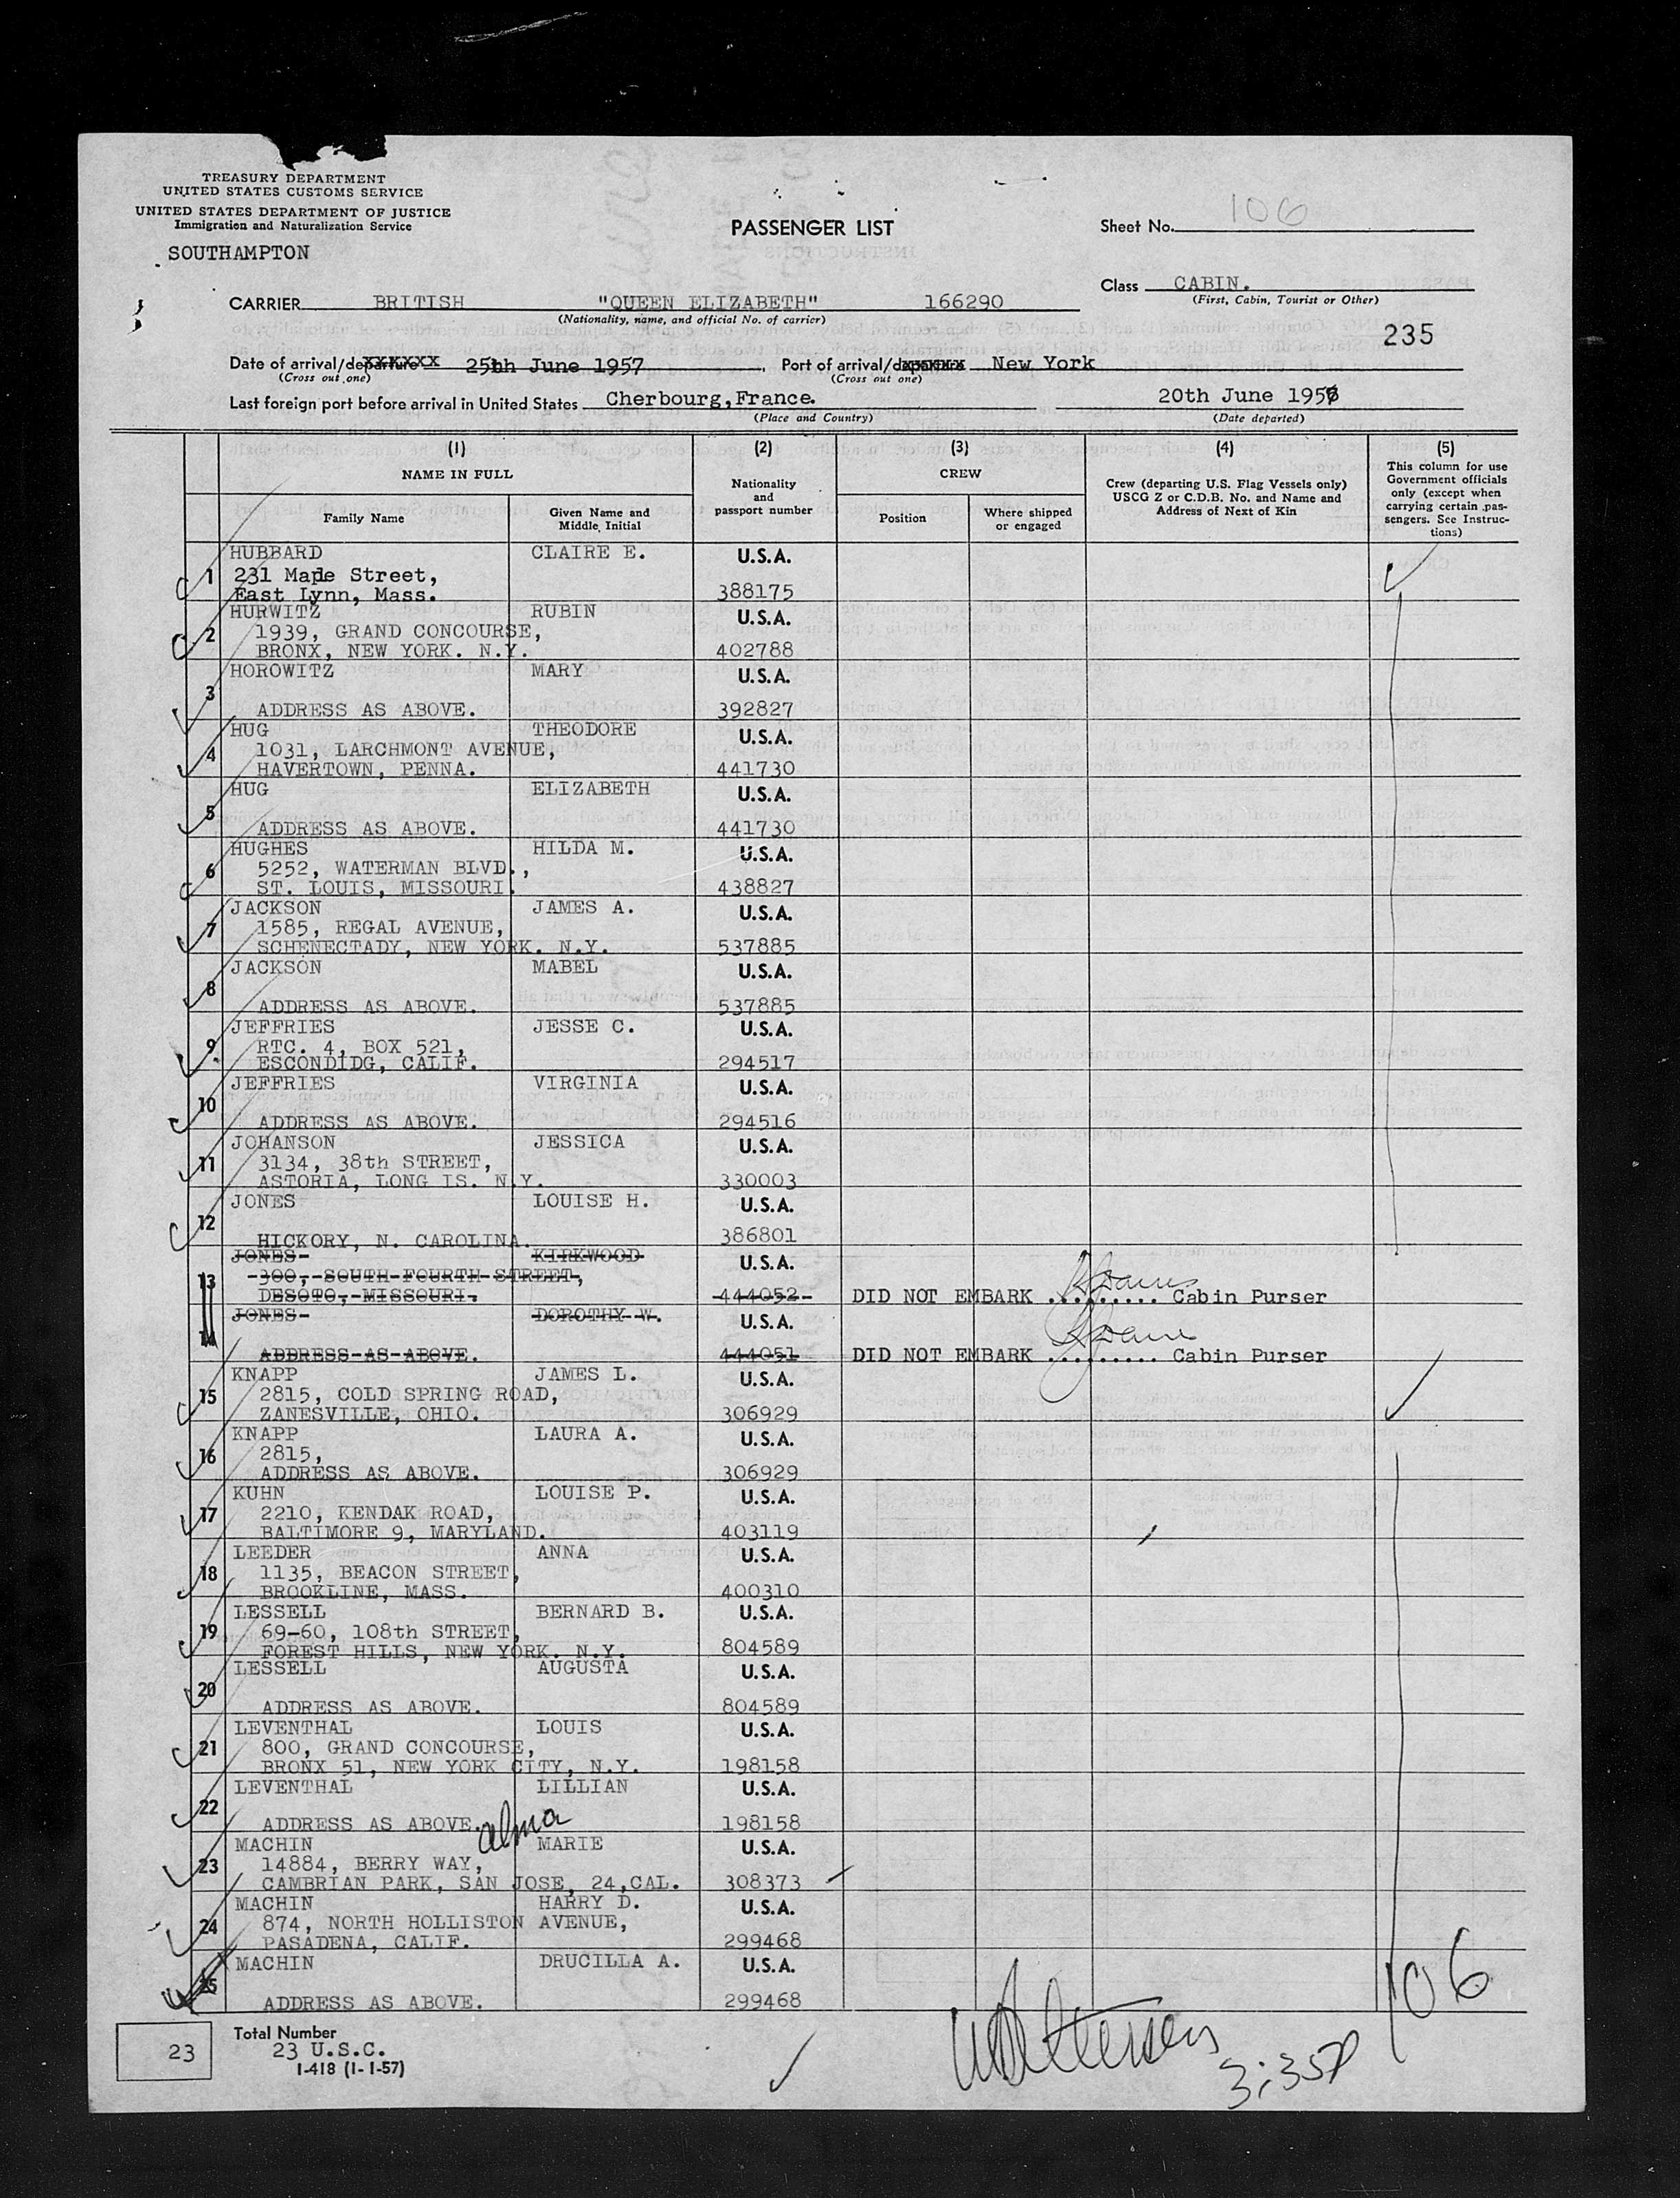 TREASURY DEPARTMENT
UNITED STATES CUSTOMS SERVICE
UNITED STATES DEPARTMENT OF JUSTICE
Immigration and Naturalization Service
SOUTHAMPTON
PASSENGER LIST
Sheet No. 106
Class CABIN.
(First, Cabin, Tourist or Other)
CARRIER BRITISH "QUEEN ELIZABETH" 166290
(Nationality, name, and official No. of carrier)
235
Date of arrival/departure 25th June 1957. Port of arrival/departure New York
(Cross out one) (Cross out one)
Last foreign port before arrival in United States Cherbourg,France. 20th June 195
(Place and Country) (Date departed)
(1) (2) (3) (4) (5)
NAME IN FULL
Family Name
Given Name and
Middle Initial
Nationality
and
passport number
CREW
Position
Where shipped
or engaged
Crew (departing U.S. Flag Vessels only)
USCG Z or C.D.B. No. and Name and
Address of Next of Kin
This column for use
Government officials
only (except when
carrying certain pas-
sengers. See Instruc-
tions)
HUBBARD CLAIRE E. U.S.A.
1 231 Maple Street,
East Lynn, Mass. 388175
HURWITZ RUBIN U.S.A.
2 1939, GRAND CONCOURSE,
BRONX, NEW YORK. N.Y. 402788
HOROWITZ MARY U.S.A.
3
ADDRESS AS ABOVE. 392827
HUG THEODORE U.S.A.
4 1031, LARCHMONT AVENUE,
HAVERTOWN, PENNA. 441730
HUG ELIZABETH U.S.A.
5
ADDRESS AS ABOVE. 441730
HUGHES HILDA M. U.S.A.
6 5252, WATERMAN BLVD.,
ST. LOUIS, MISSOURI. 438827
JACKSON JAMES A. U.S.A.
7 1585, REGAL AVENUE,
SCHENECTADY, NEW YORK. N.Y. 537885
JACKSON MABEL U.S.A.
8
ADDRESS AS ABOVE. 537885
JEFFRIES JESSE C. U.S.A.
9 RTC. 4, BOX 521,
ESCONDIDG, CALIF. 294517
JEFFRIES VIRGINIA U.S.A.
10
ADDRESS AS ABOVE. 294516
JOHANSON JESSICA U.S.A.
11 3134, 38th STREET,
ASTORIA, LONG IS. N.Y. 330003
JONES LOUISE H. U.S.A.
12
HICKORY, N. CAROLINA. 386801
JONES KIRKWOOD U.S.A.
13 300, SOUTH FOURTH STREET,
DESOTO, MISSOURI. 444052 DID NOT EMBARK ......... Cabin Purser
JONES DOROTHY W. U.S.A.
14
ADDRESS AS ABOVE. 444051 DID NOT EMBARK ......... Cabin Purser
KNAPP JAMES L. U.S.A.
15 2815, COLD SPRING ROAD,
ZANESVILLE, OHIO. 306929
KNAPP LAURA A. U.S.A.
16 2815,
ADDRESS AS ABOVE. 306929
KUHN LOUISE P. U.S.A.
17 2210, KENDAK ROAD,
BALTIMORE 9, MARYLAND. 403119
LEEDER ANNA U.S.A.
18 1135, BEACON STREET,
BROOKLINE, MASS. 400310
LESSELL BERNARD B. U.S.A.
19 69-60, 108th STREET,
FOREST HILLS, NEW YORK. N.Y. 804589
LESSELL AUGUSTA U.S.A.
20
ADDRESS AS ABOVE. 804589
LEVENTHAL LOUIS U.S.A.
21 800, GRAND CONCOURSE,
BRONX 51, NEW YORK CITY, N.Y. 198158
LEVENTHAL LILLIAN U.S.A.
22
ADDRESS AS ABOVE. 198158
alma
MACHIN MARIE U.S.A.
23 14884, BERRY WAY,
CAMBRIAN PARK, SAN JOSE, 24,CAL. 308373
MACHIN HARRY D. U.S.A.
24 874, NORTH HOLLISTON AVENUE,
PASADENA, CALIF. 299468
MACHIN DRUCILLA A. U.S.A.
25
ADDRESS AS ABOVE. 299468
106
23
Total Number
23 U.S.C.
I-418 (1-1-57)
3:35P